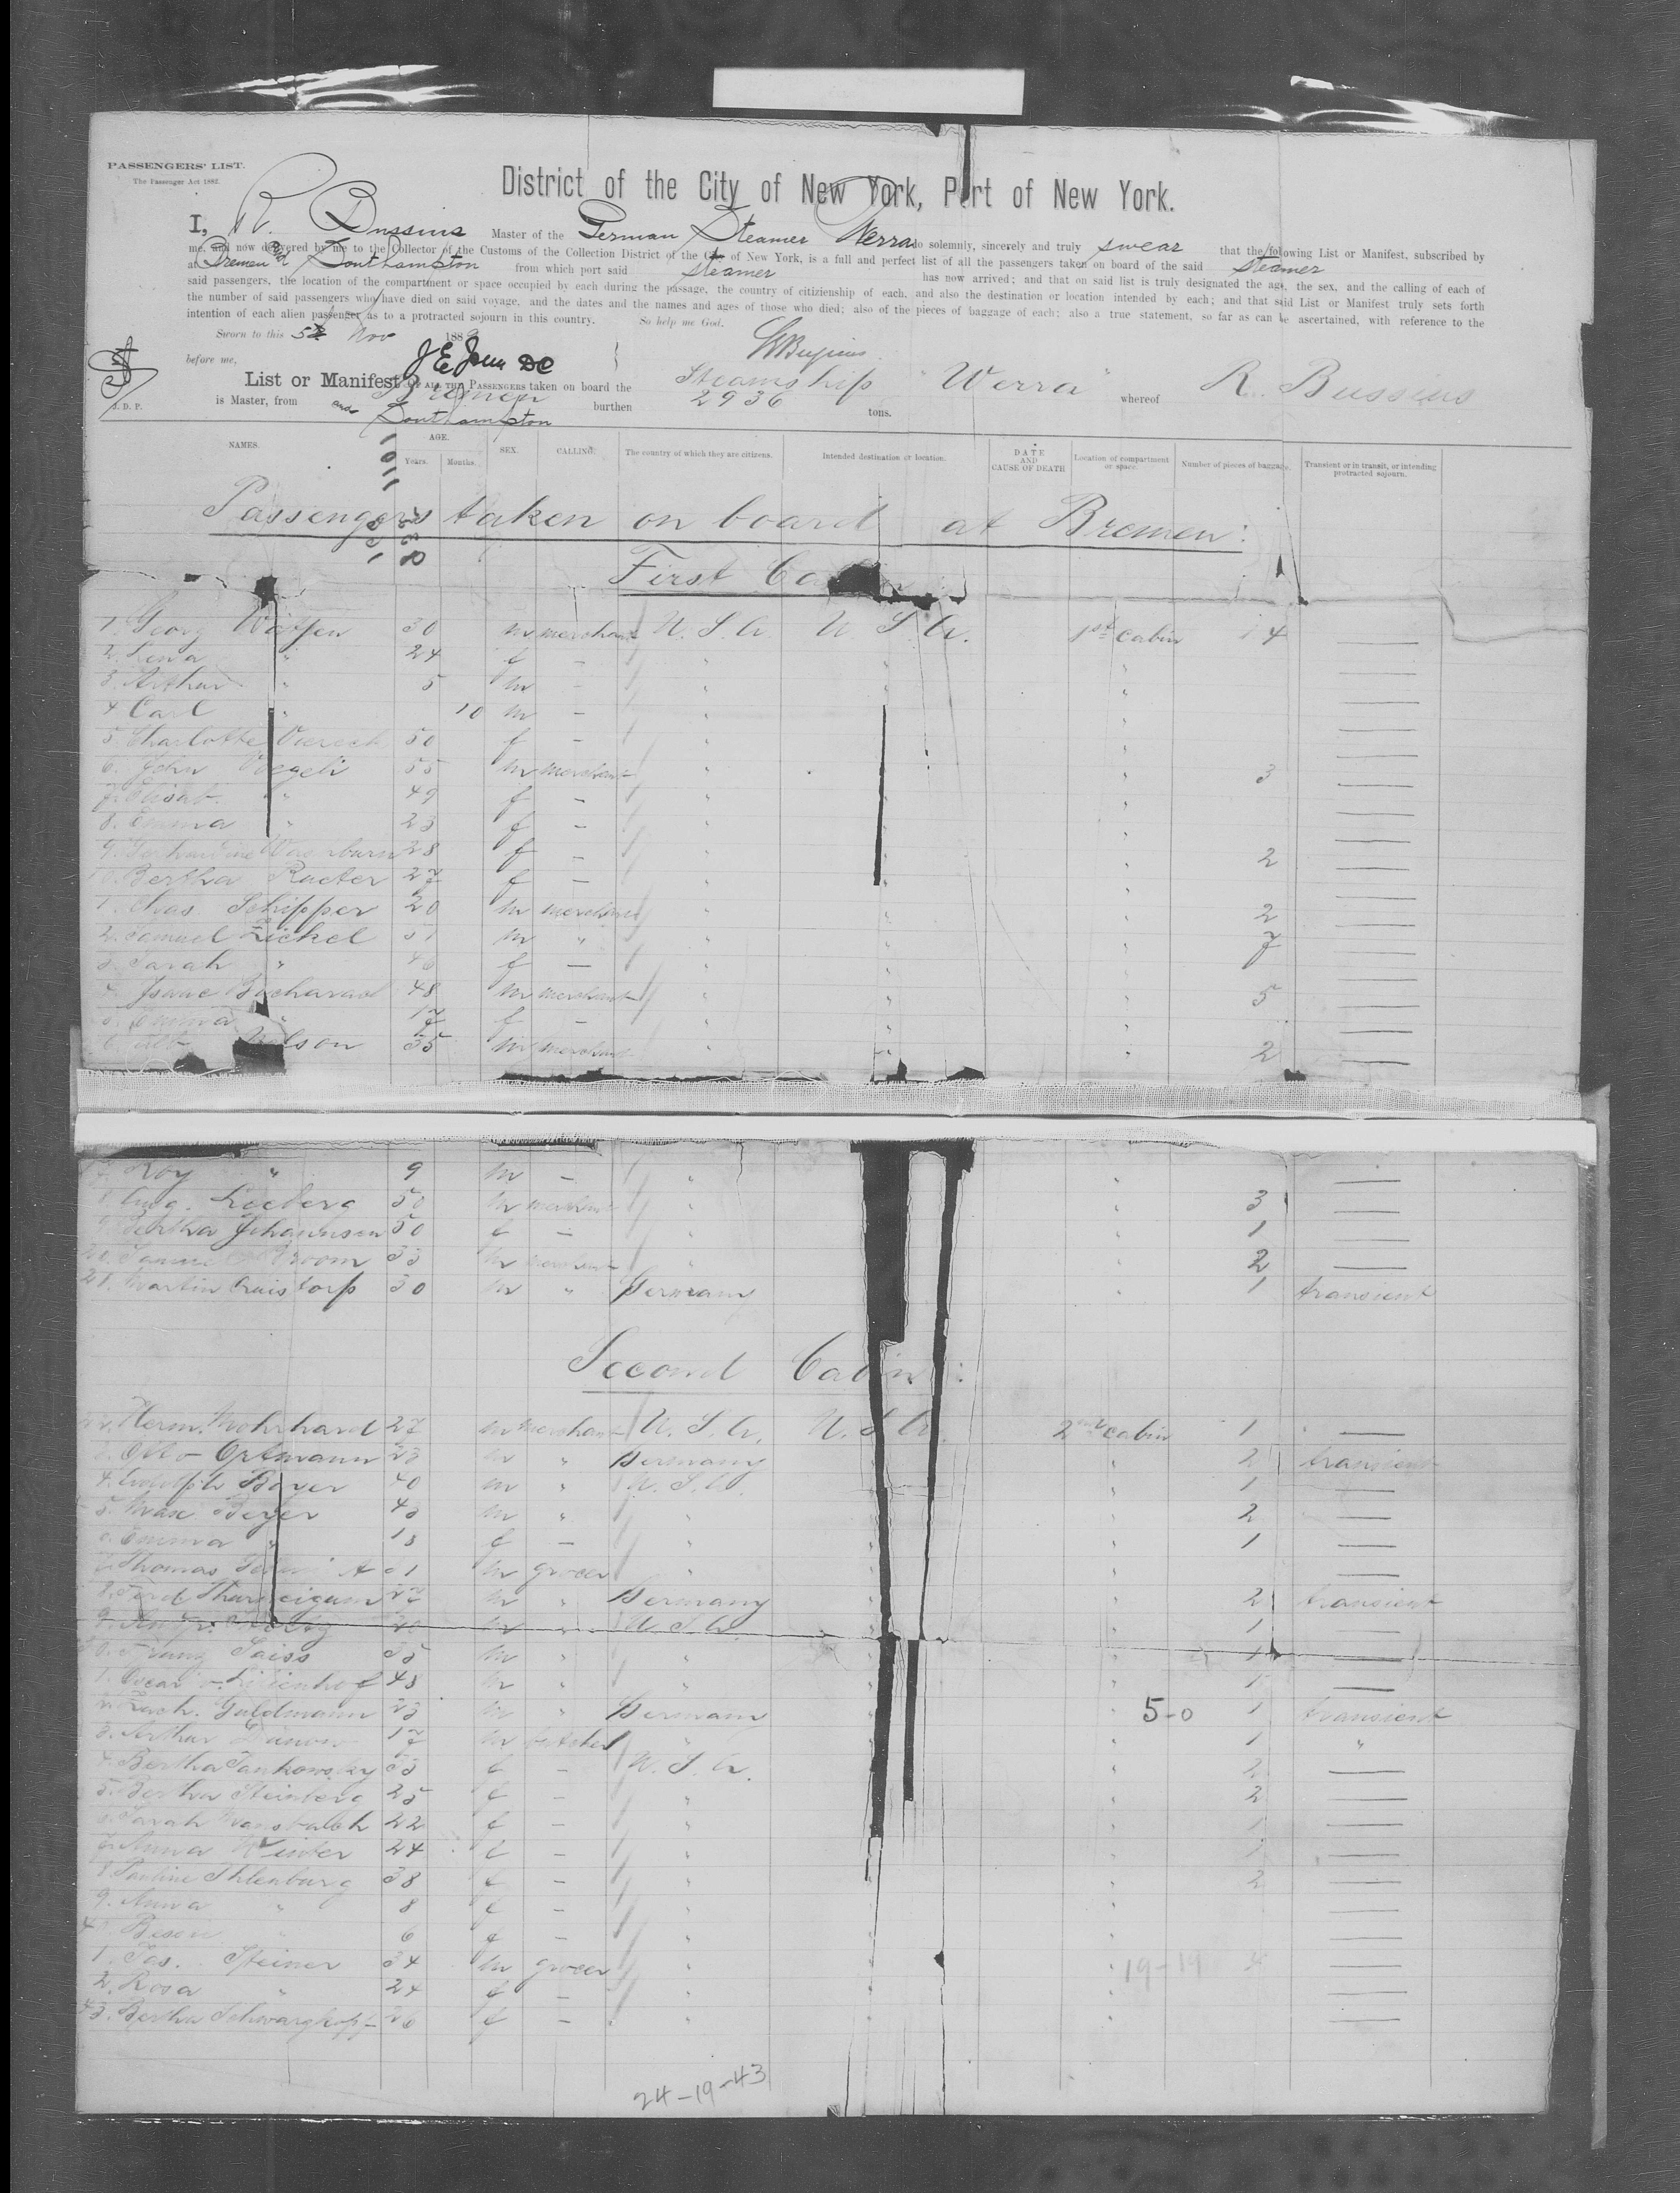 PASSENGERS' LIST.
The Passenger Act 1882.
District of the City of New York, Port of New York.
I, R. Bussius Master of the German Steamer Werra do solemnly, sincerely and truly swear that the following List or Manifest, subscribed by
me, and now delivered by me to the Collector of the Customs of the Collection District of the City of New York, is a full and perfect list of all the passengers taken on board of the said steamer
at Bremen and Southampton from which port said steamer has now arrived; and that on said list is truly designated the age, the sex, and the calling of each of
said passengers, the location of the compartment or space occupied by each during the passage, the country of citizienship of each, and also the destination or location intended by each; and that said List or Manifest truly sets forth
the number of said passengers who have died on said voyage, and the dates and the names and ages of those who died; also of the pieces of baggage of each; also a true statement, so far as can be ascertained, with reference to the
intention of each alien passenger as to a protracted sojourn in this country. So help me God.
Sworn to this 5th Nov 188
before me,
List or Manifest OF ALL THE PASSENGERS taken on board the Steamship "Werra" whereof R. Bussius
is Master, from Bremen and Southampton burthen 2936 tons.
J. D. P.
NAMES. AGE. Years. Months. SEX. CALLING. The country of which they are citizens. Intended destination or location. DATE AND CAUSE OF DEATH Location of compartment or space. Number of pieces of baggage. Transient or in transit, or intending protracted sojourn.
Passengers taken on board at Bremen:
First
1. Georg 30 m merchant U. S. A. U. S. A. 1st Cabin 4 —
2. Lena " 24 f — " " " —
3. Arthur " 5 m — " " " —
4. Carl " 10 m — " " " —
5. Charlotte 50 f — " " " —
6. John Voegeli 55 m merchant " " " 3 —
7. Elisab. " 49 f — " " " —
8. Emma " 23 f — " " " —
9. 28 f — " " " 2 —
Bertha Rueter 27 f — " " " —
1. Chas. Schipper 20 m merchant " " " 2 —
2. Samuel Zickel 51 m " " " " 7 —
3. Sarah " f — " " " —
Isaac 48 m merchant " " " 5 —
Emma " 17 f — " " " —
35 m merchant " " " 2 —
Roy " 9 m — " " —
8. Aug. Leeberg 50 m merchant " " 3 —
9. Bertha Johannsen 50 f — " " 1 —
m merchant " 2 —
21. Martin Quistorp 50 m " Germany " 1 transient
Second Cabin:
Herm. Mohrhard 27 m merchant U. S. A. U. S. A. 2nd cabin 1 —
3. Otto Ortmann 23 m " Germany " 2 transient
4. Adolph 40 m " U. S. A. " 1 —
5. Max Beyer 43 m " " " 2 —
6. Emma " f — " " 1 —
7. Thomas m grocer " " —
8. Ferd. 27 m " Germany " 2 transient
9. m " U. S. A. " 1 —
Franz Saiss 35 m " " " 1 —
1. Oscar 43 m " " " 1 —
2. Zach. Guldmann 23 m " Germany " 5-0 1 transient
3. Arthur 17 m butcher " " 1 "
4. Bertha Jankowsky f — U. S. A. " 2 —
5. Bertha Steinberg 25 f — " " 2 —
6. Sarah 22 f — " " 1 —
7. Anna Winter 24 f — " " 1 —
8. Pauline Ihlenburg 38 f — " " 2 —
9. Anna " 8 f — " " —
" 6 f — " " —
1. Jos. Steiner 34 m grocer " " 19-19 4 —
2. Rosa " 24 f — " " —
43. Bertha Schwarzkopf 26 f — " " —
24-19-43